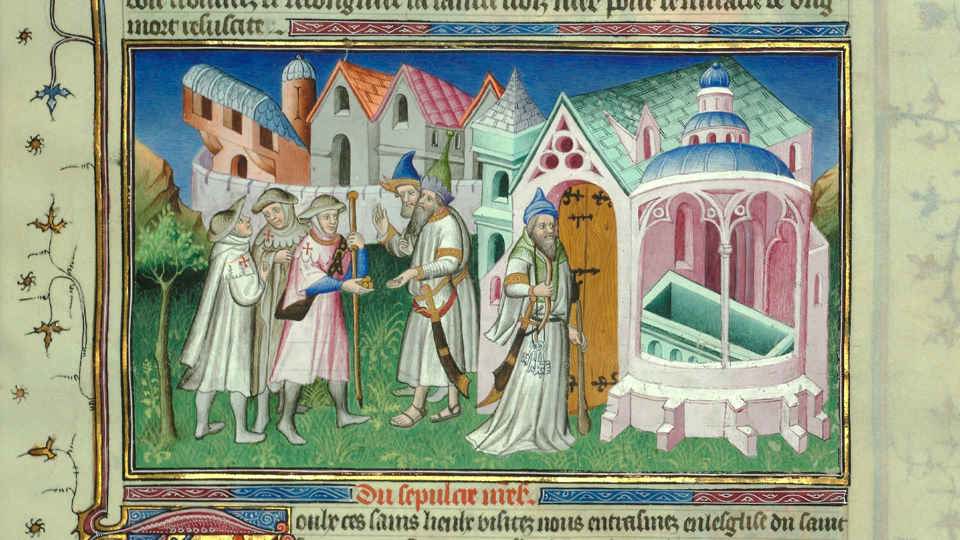 la sainte croix pour le miracle de ung
mort resuscite
Du sepulcre
oulz ces sains lieux visitez nous entrasmez en lesglise du saint